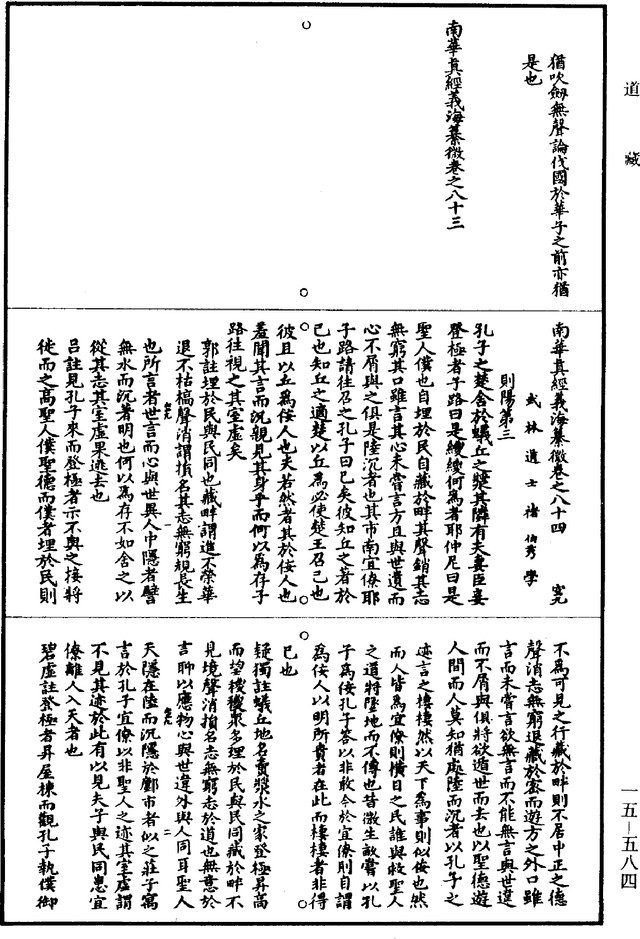 道藏
猶吹劒無聲論伐國於華子之前亦猶
是也
南華真經義海纂微卷之八十三
南華真經義海纂微卷之八十四 究九
武林道士褚伯秀學
則陽第三
孔子之楚舍於蟻丘之漿其隣有夫妻臣妾
登極者子路曰是稯稯何為者耶仲尼曰是
聖人僕也自埋於民自藏於畔其聲銷其志
無窮其口雖言其心未嘗言方且與世違而
心不屑與之俱是陸沉者也其市南宜僚耶
子路請往召之孔子曰已矣彼知丘之著於
己也知丘之適楚以丘為必使楚王召己也
彼且以丘為佞人也夫若然者其於佞人也
羞聞其言而沉親見其身乎而何以為存子
路往視之其室虛矣
郭註埋於民與民同也藏畔謂進不榮華
退不枯槁聲消謂損名其志無窮規長生
也所言者世言而心與世異人中隱者譬
無水而沉著明也何以為存不如舍之以
從其志其室虛果逃去也
呂註見孔子來而登極者示不與之接將
徙而之高聖人僕聖德而僕者埋於民則
不為可見之行藏於畔則不居中正之德
聲消志無窮退藏於密而遊方之外口雖
言而未嘗言欲無言而不能無言與世違
而不屑與俱將欲遁世而去也以聖德遊
人間而人莫知猶處陸而沉者以孔子之
迹言之棲棲然以天下為事則似佞也然
而人皆為宜僚則橫目之民誰與救聖人
之道將墜地而不傳也昔微生畝嘗以孔
子為佞孔子答以非敢今於宜僚則自謂
為佞人以明所貴者在此而棲棲者非得
已也
疑獨註蟻丘地名賣漿水之家登極昇高
而望稯稯衆多理於民與民同藏於畔不
見境聲消損名志無窮志於道也無意於
言聊以應物心與世違外與人同耳聖人
天隱在陸而沉隱於鄽市者似之莊子寓
言於孔子宜僚以非聖人之迹其室虛謂
不見其迹於此有以見夫子與民同患宜
僚離人入天者也
碧虛註登極者昇屋棟而觀孔子執僕御
一五—五八四